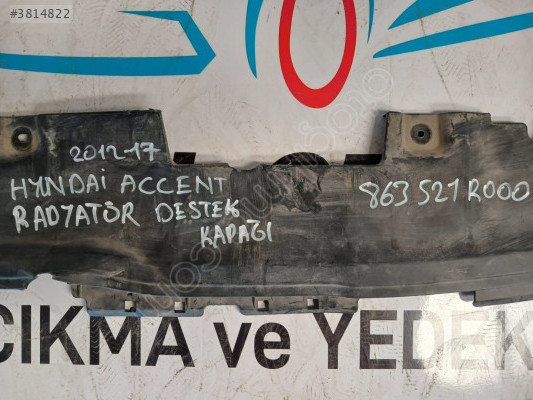 #3814822
2012-17
HYNDAİ ACCENT
RADYATÖR DESTEK
KAPAĞI
863521R000
ÇIKMA ve YEDEK